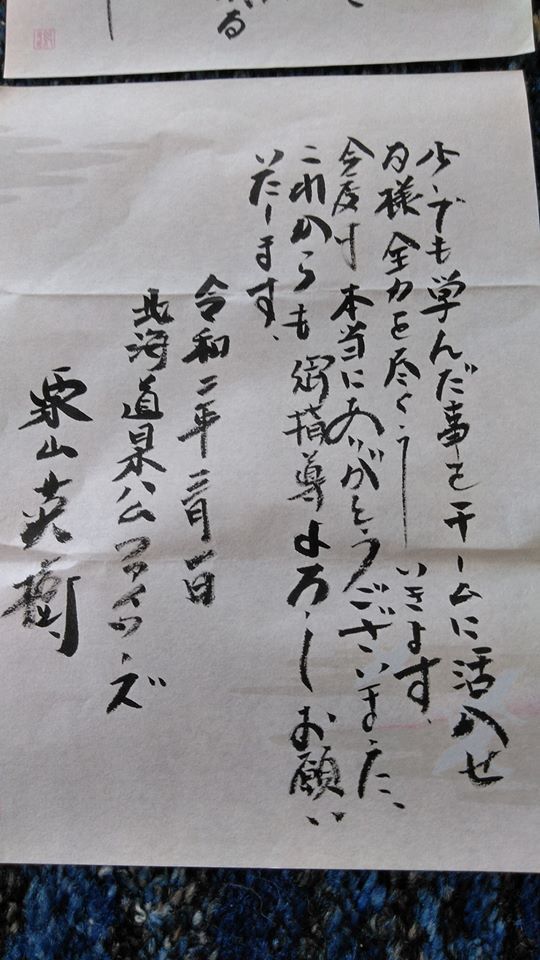 少しでも学んだ事をチームに活かせ
る様 全力を尽くしていきます、
今度は 本当にありがとうございました、
これからも 御指導よろしくお願い
いたします、
令和二年二月一日
北海道日本ハムファイターズ
栗山英樹